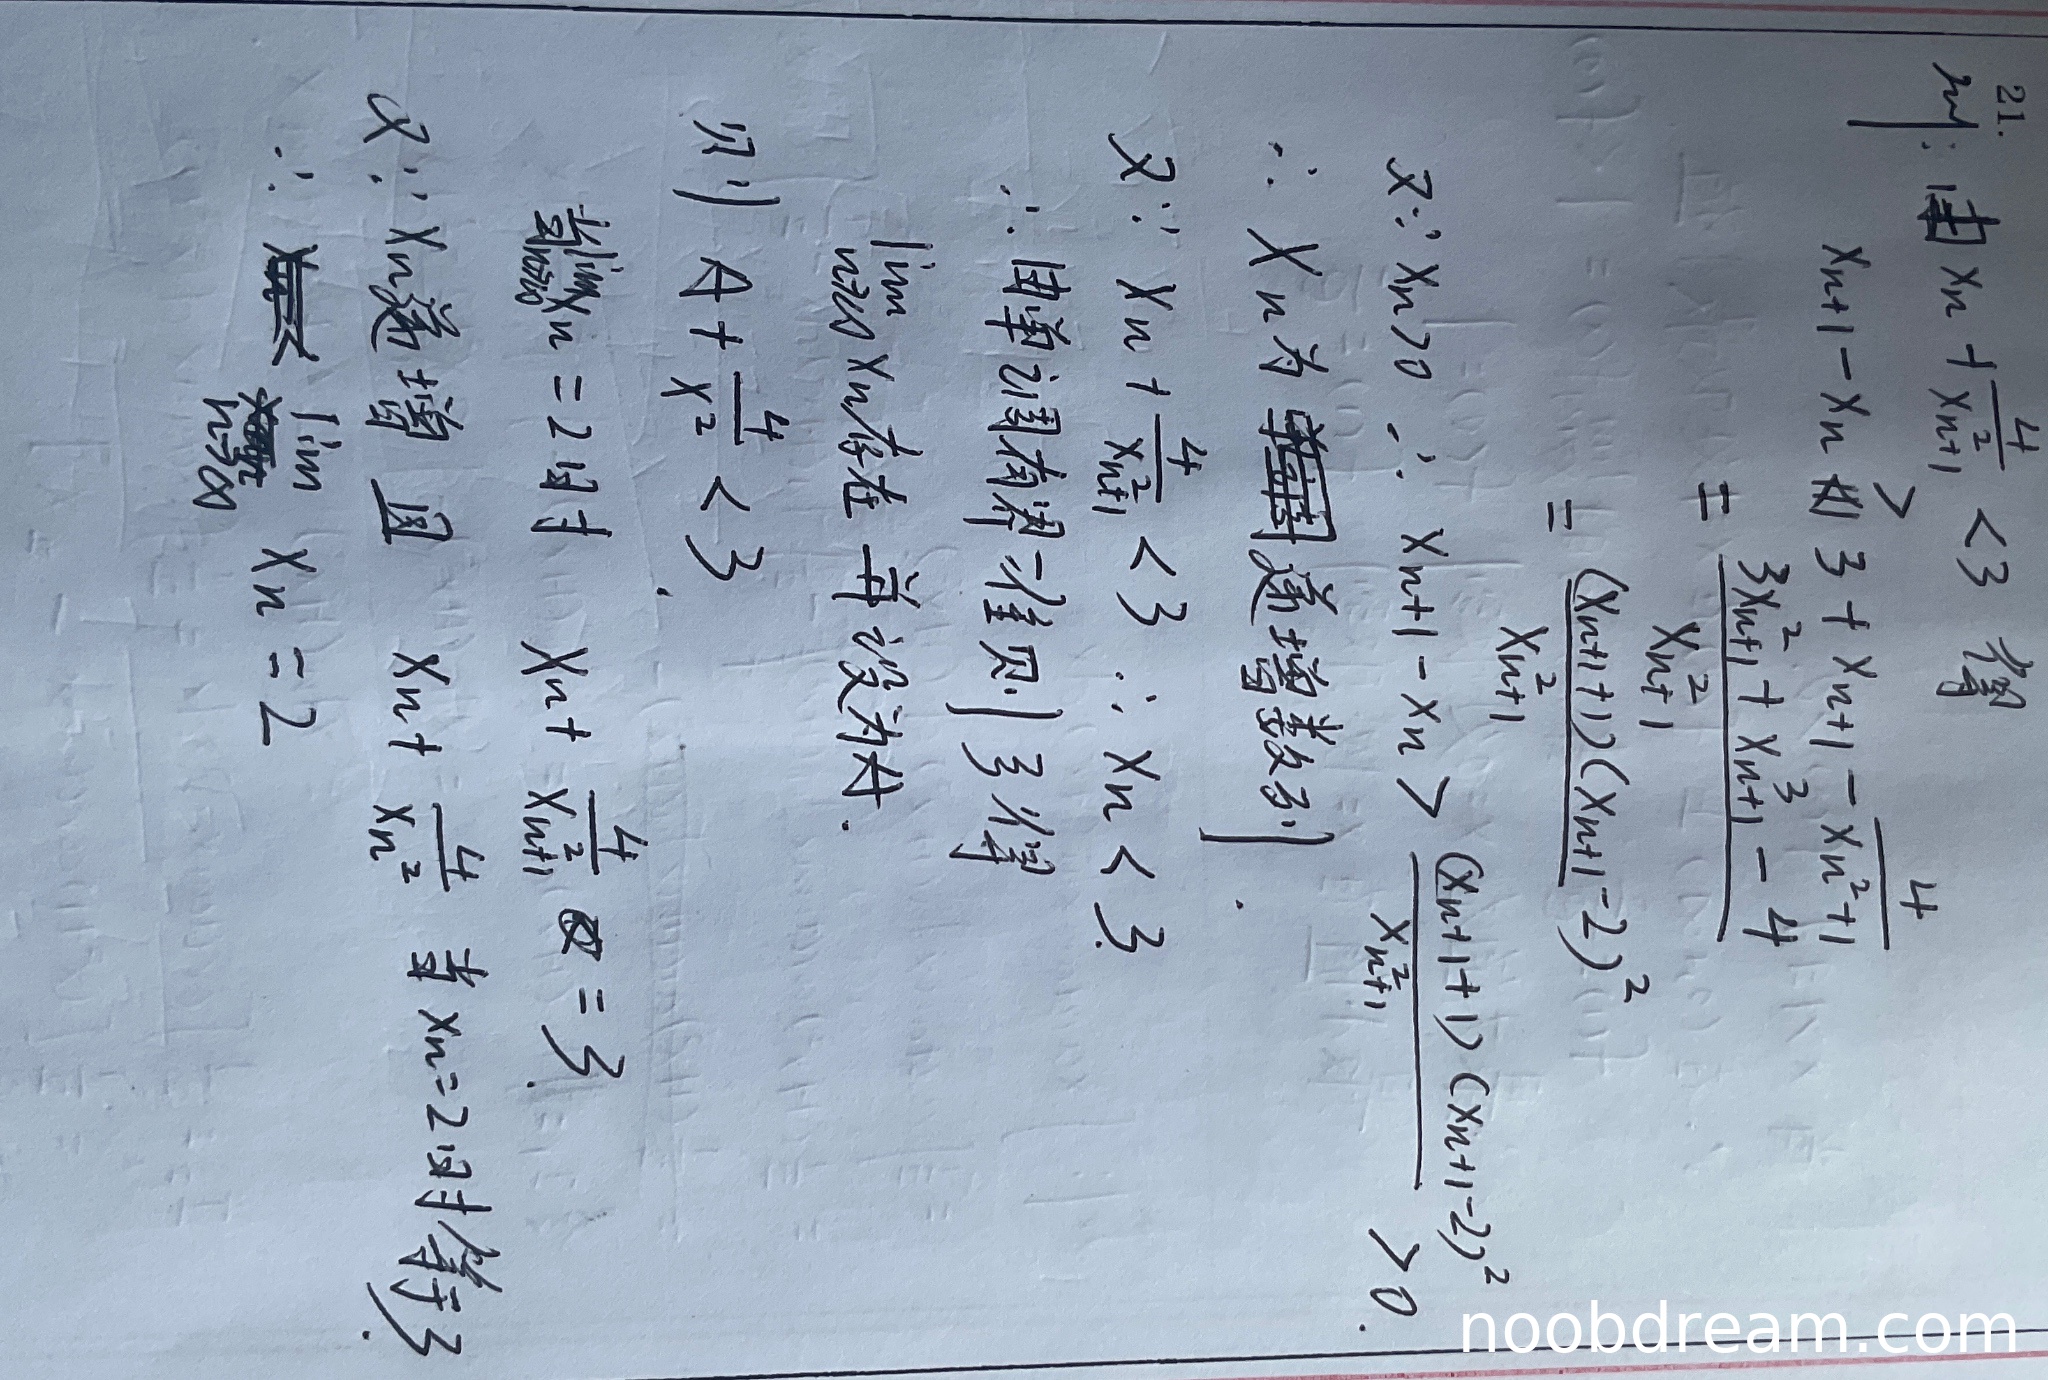 21.
由 xn + 4/x²n+1 < 3 得
xn+1 - xn > 3 + xn+1 - 4/xn²+1
= (3x²n+1 + x³n+1 - 4)/x²n+1
= (xn+1+1)(xn+1-2)²/x²n+1
又∵ xn>0 ∴ xn+1 - xn > (xn+1+1)(xn+1-2)²/x²n+1 >0.
∴ xn 为 递增数列.
又∵ xn + 4/x²n+1 < 3 ∴ xn < 3.
∴ 由单调有界准则可得
lim n→∞ xn存在 并设为A.
则 A + 4/x² < 3.
当 lim n→∞ xn = 2时 xn + 4/x²n+1 = 3.
又∵ xn递增 且 xn + 4/xn² 当 xn=2时等于3.
∴ lim n→∞ xn = 2
noobdream.com